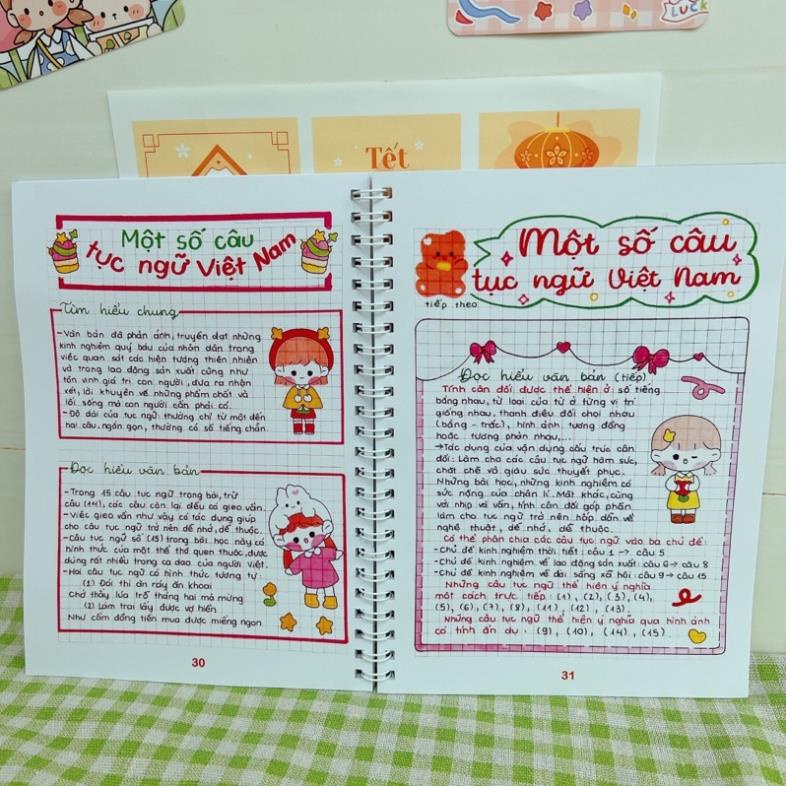 LUCK
Tết
Một số câu
tục ngữ Việt Nam
Tìm hiểu chung
- Văn bản đã phản ánh, truyền đạt những
kinh nghiệm quý báu của nhân dân trong
việc quan sát các hiện tượng thiên nhiên
và trong lao động sản xuất cũng như
tôn vinh giá trị con người, đưa ra nhận
xét, lời khuyên về những phẩm chất và
lối sống mà con người cần phải có.
- Độ dài của tục ngữ: thường chỉ từ một đến
hai câu, ngắn gọn, thường có số tiếng chẵn.
Đọc hiểu văn bản
- Trong 15 câu tục ngữ trong bài, trừ
câu (14), các câu còn lại đều có gieo vần.
- Việc gieo vần như vậy có tác dụng giúp
cho câu tục ngữ trở nên dễ nhớ, dễ thuộc.
- Câu tục ngữ số (15) trong bài học này có
hình thức của một thể thơ quen thuộc, được
dùng rất nhiều trong ca dao của người Việt.
- Hai câu tục ngữ có hình thức tương tự:
(1) Đói thì ăn ráy ăn khoai
Chớ thấy lúa trổ tháng hai mà mừng
(2) Làm trai lấy được vợ hiền
Như cầm đồng tiền mua được miếng ngon
30
Một số câu
tục ngữ Việt Nam
tiếp theo
Đọc hiểu văn bản (tiếp)
Tính cân đối được thể hiện ở: số tiếng
bằng nhau, từ loại của từ ở từng vị trí
giống nhau, thanh điệu đối chọi nhau
(bằng - trắc), hình ảnh tương đồng
hoặc tương phản nhau,...
→ Tác dụng của vận dụng cấu trúc cân
đối: Làm cho các câu tục ngữ hàm súc,
chặt chẽ và giàu sức thuyết phục.
Những bài học, những kinh nghiệm có
sức nặng của chân lí. Mặt khác, cùng
với nhịp và vần, tính cân đối góp phần
làm cho tục ngữ trở nên hấp dẫn về
nghệ thuật, dễ nhớ, dễ thuộc.
Có thể phân chia các câu tục ngữ vào ba chủ đề:
- Chủ đề kinh nghiệm thời tiết: câu 1 → câu 5
- Chủ đề kinh nghiệm về lao động sản xuất: câu 6 → câu 8
- Chủ đề kinh nghiệm về đời sống xã hội: câu 9 → câu 15
Những câu tục ngữ thể hiện ý nghĩa
một cách trực tiếp: (1), (2), (3), (4),
(5), (6), (7), (8), (11), (12), (13).
Những câu tục ngữ thể hiện ý nghĩa qua hình ảnh
có tính ẩn dụ: (9), (10), (14), (15).
31